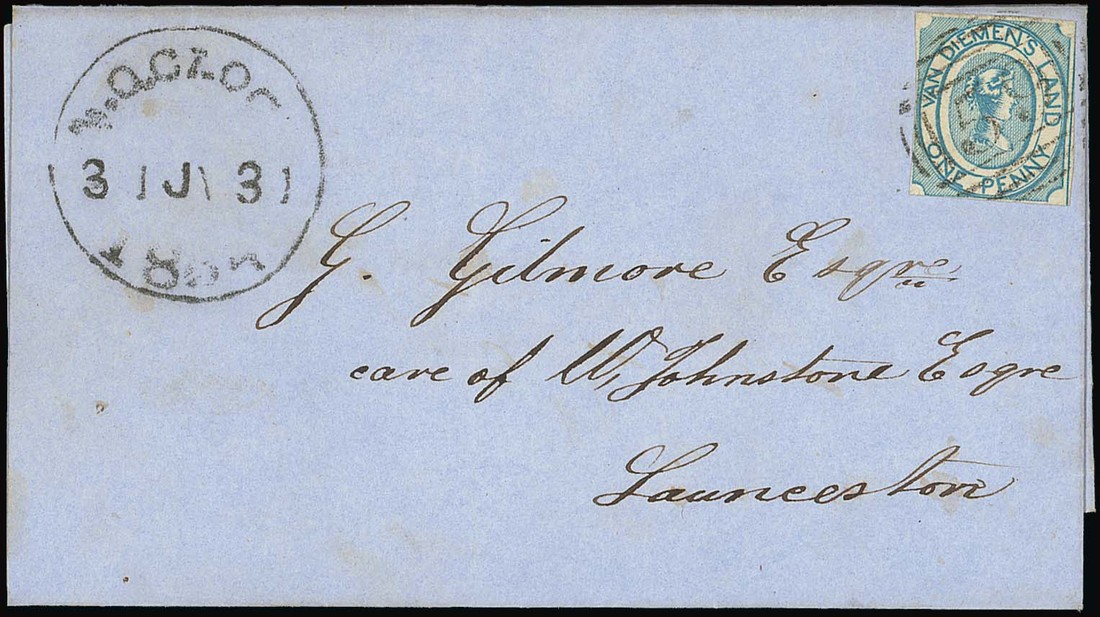 VAN DIEMEN'S LAND
ONE PENNY
3 1 J 31
G. Gilmore Esqre
care of W. Johnstone Esqre
Launceston